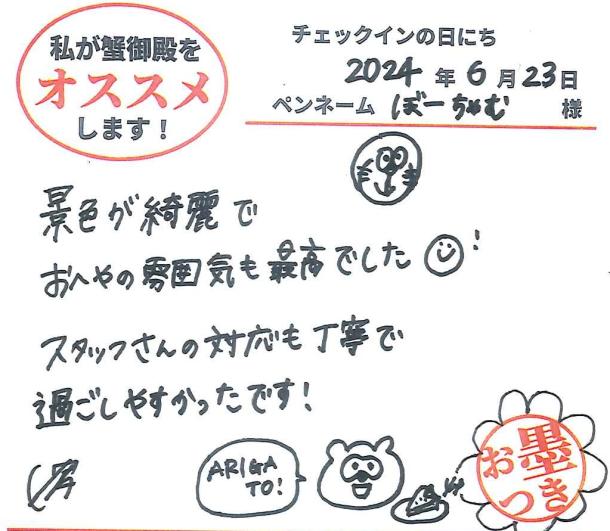 私が蟹御殿を
オススメ
します！
チェックインの日にち
2024 年 6 月 23 日
ペンネーム ぼーちゃむ 様
景色が綺麗で
おへやの雰囲気も最高でした！
スタッフさんの対応も丁寧で
過ごしやすかったです！
ARIGA
TO!
お墨
つき